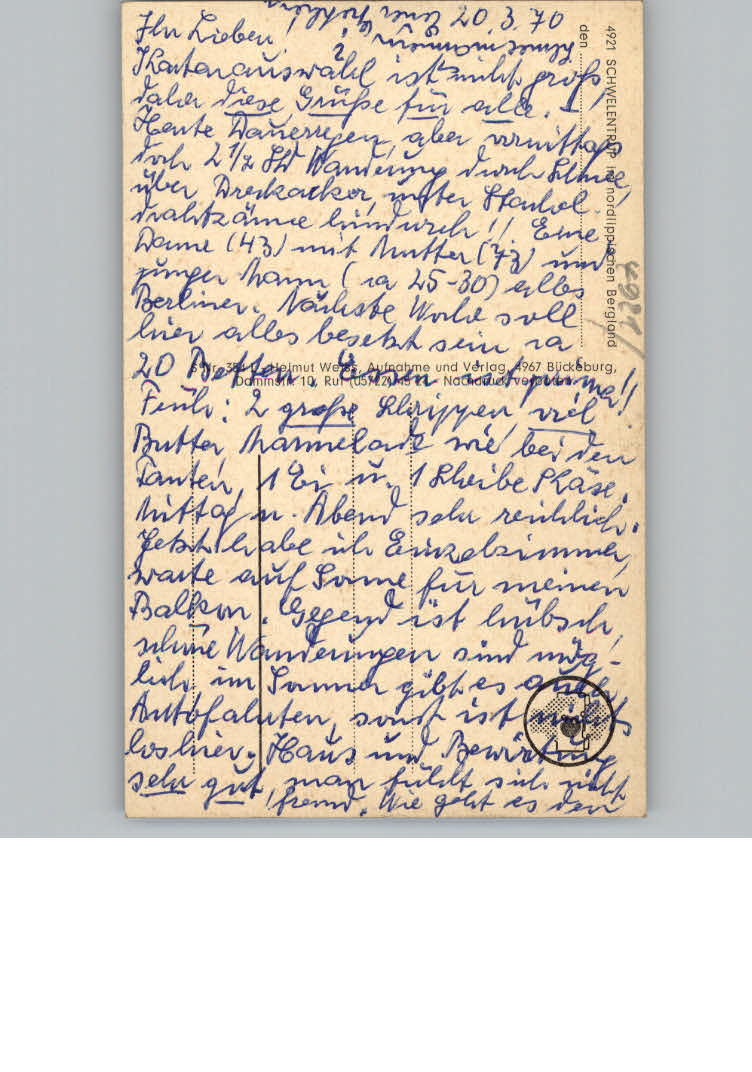 20.3.70
Ihr Lieben!
Kartenauswahl ist nicht groß,
daher diese Grüße für alle. –
Heute Dauerregen, aber vormittags
doch 2 1/2 Std Wanderung durch Schnee,
über Dreckacker, unter Stachel-
drahtzäune hindurch!! Eine
Dame (43) mit Mutter (73) und
junger Mann (ca 25-30) alles
Berliner. Nächste Woche soll
hier alles besetzt sein ca
20 Betten. Essen ist prima!!
Früh: 2 große Schrippen, viel
Butter, Marmelade wie bei den
Tanten, 1 Ei u. 1 Scheibe Käse.
Mittag u. Abend sehr reichlich.
Jetzt habe ich Einzelzimmer,
warte auf Sonne für meinen
Balkon. Gegend ist hübsch,
schöne Wanderungen sind mög-
lich im Sommer gibt es auch
Autofahrten, sonst ist nichts
los hier. Haus und Bewirtung
sehr gut, man fühlt sich nicht
fremd. Wie geht es den
4921 SCHWELENTRUP im nordlippischen Bergland
den
4921
Helmut Weiss, Aufnahme und Verlag, 4967 Bückeburg,
Dammstr. 10, Ruf Nachdruck verboten